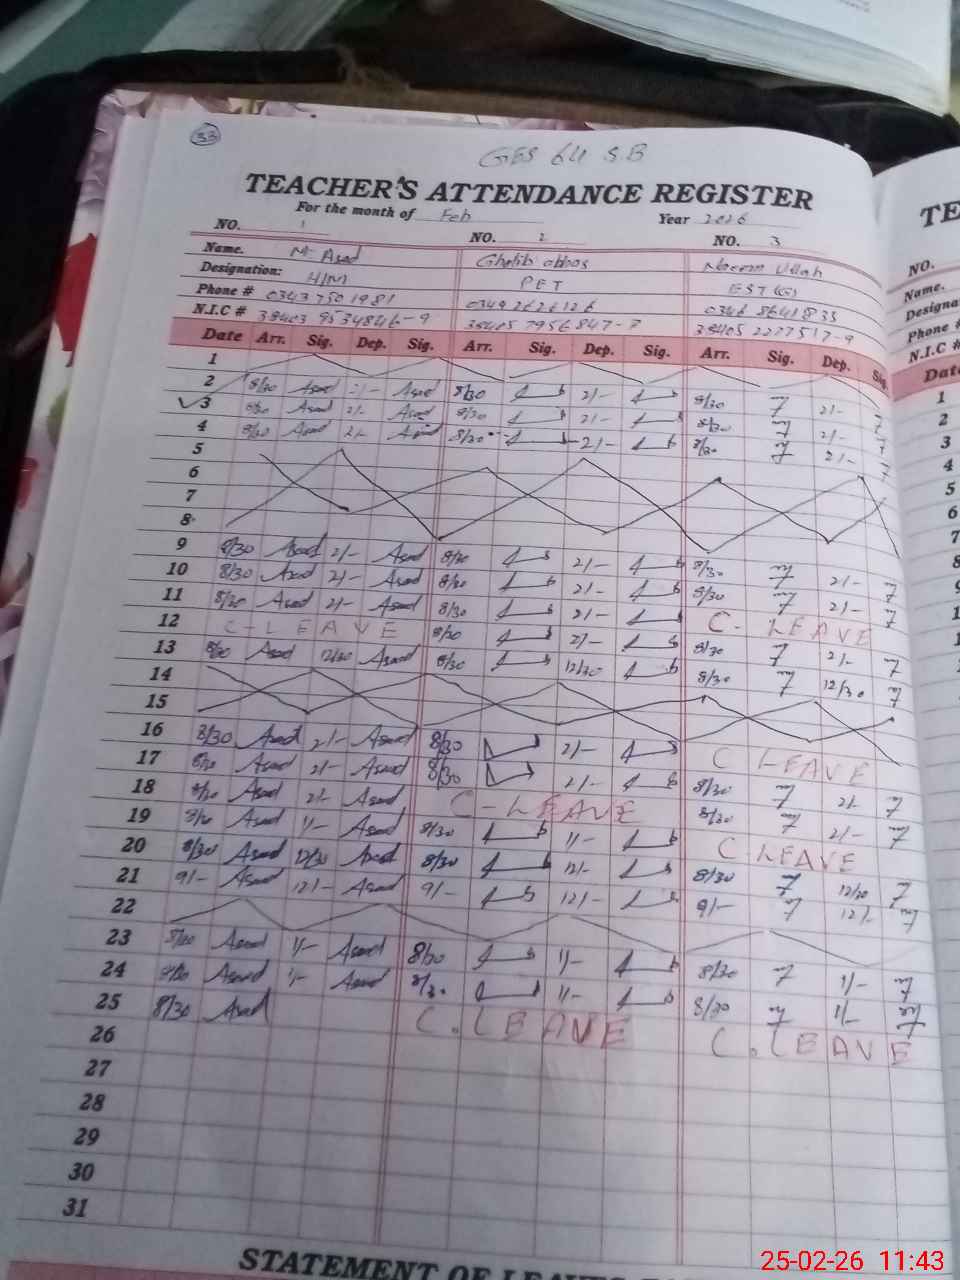 33
GES 64 S.B
TEACHER'S ATTENDANCE REGISTER
For the month of Feb Year 2026
NO. 1 NO. 2 NO. 3
Name. Mr Asad Ghalib abbas Naeem Ullah
Designation: H/M PET EST (G)
Phone # 0343 7501981 0349 2626126 0346 8641835
N.I.C # 38403 9534846-9 38405 7956847-7 38405 2277517-9
Date Arr. Sig. Dep. Sig. Arr. Sig. Dep. Sig. Arr. Sig. Dep. Sig.
1
2 8/30 Asad 2/- Asad 8/30 2/- 8/30 2/-
3 8/30 Asad 2/- Asad 8/30 2/- 8/30 2/-
4 8/30 Asad 2/- Asad 8/30 2/- 8/30 2/-
5
6
7
8
9 8/30 Asad 2/- Asad 8/30 2/- 8/30 2/-
10 8/30 Asad 2/- Asad 8/30 2/- 8/30 2/-
11 8/30 Asad 2/- Asad 8/30 2/- C. LEAVE
12 C-LEAVE 8/30 2/- 8/30 2/-
13 8/30 Asad 12/30 Asad 8/30 12/30 8/30 12/30
14
15
16 8/30 Asad 2/- Asad 8/30 2/- C LEAVE
17 8/30 Asad 2/- Asad 8/30 2/- 8/30 2/-
18 8/30 Asad 2/- Asad C-LEAVE 8/30 2/-
19 8/30 Asad 1/- Asad 8/30 1/- C LEAVE
20 8/30 Asad 12/30 Asad 8/30 12/- 8/30 12/30
21 9/- Asad 12/- Asad 9/- 12/- 9/- 12/-
22
23 8/30 Asad 1/- Asad 8/30 1/- 8/30 1/-
24 8/30 Asad 1/- Asad 8/30 1/- 8/30 1/-
25 8/30 Asad C. LEAVE C. LEAVE
26
27
28
29
30
31
STATEMENT OF LEAVES
TE
NO.
Name.
Designa
Phone #
N.I.C #
Date
1
2
3
4
5
6
7
8
25-02-26 11:43